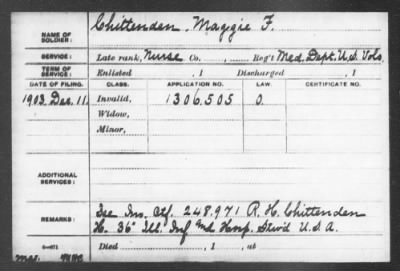 NAME OF SOLDIER: Chittenden, Maggie F.
SERVICE: Late rank, Nurse Co. , Reg't Med. Dept. U.S. Vols.
TERM OF SERVICE: Enlisted , 1 Discharged , 1
DATE OF FILING. CLASS. APPLICATION NO. LAW. CERTIFICATE NO.
1903 Dec. 11, Invalid, 1306.505 O.
Widow,
Minor,
ADDITIONAL SERVICES:
REMARKS: See Inv. Ctf. 248.971 R. H. Chittenden
H. 36" Ill. Inf. and Hosp. Stw'd U.S.A.
Died , 1 , at